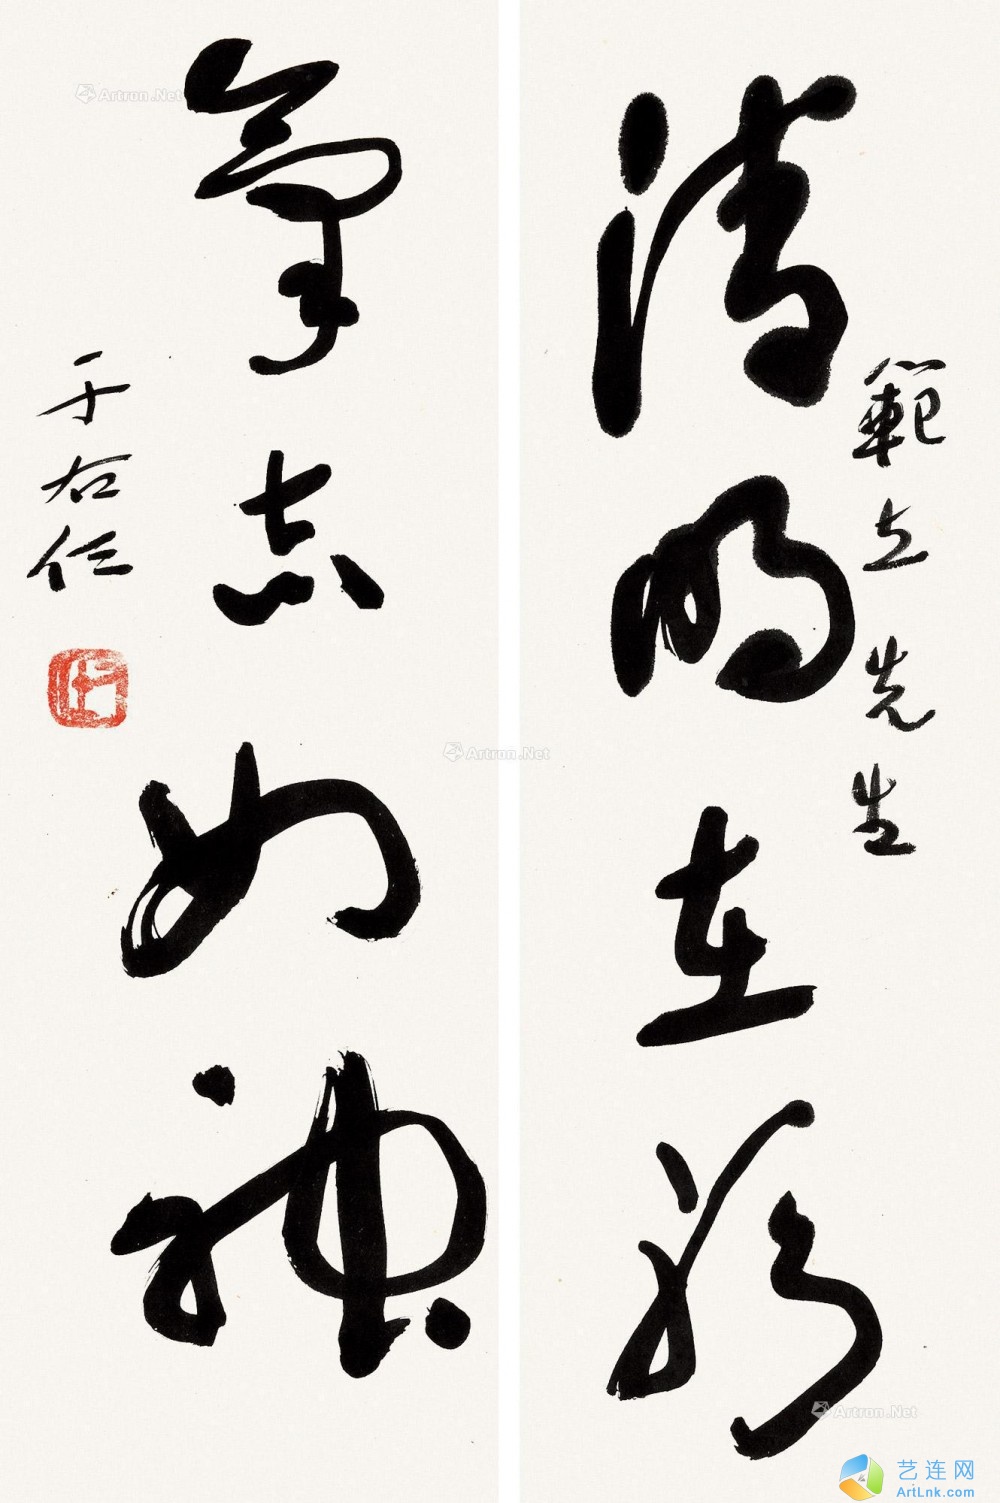 範立先生
清明在躬
氣志如神
于右任
右任
Artron.Net
Artron.Net
Artron.Net
艺连网
ArtLnk.com